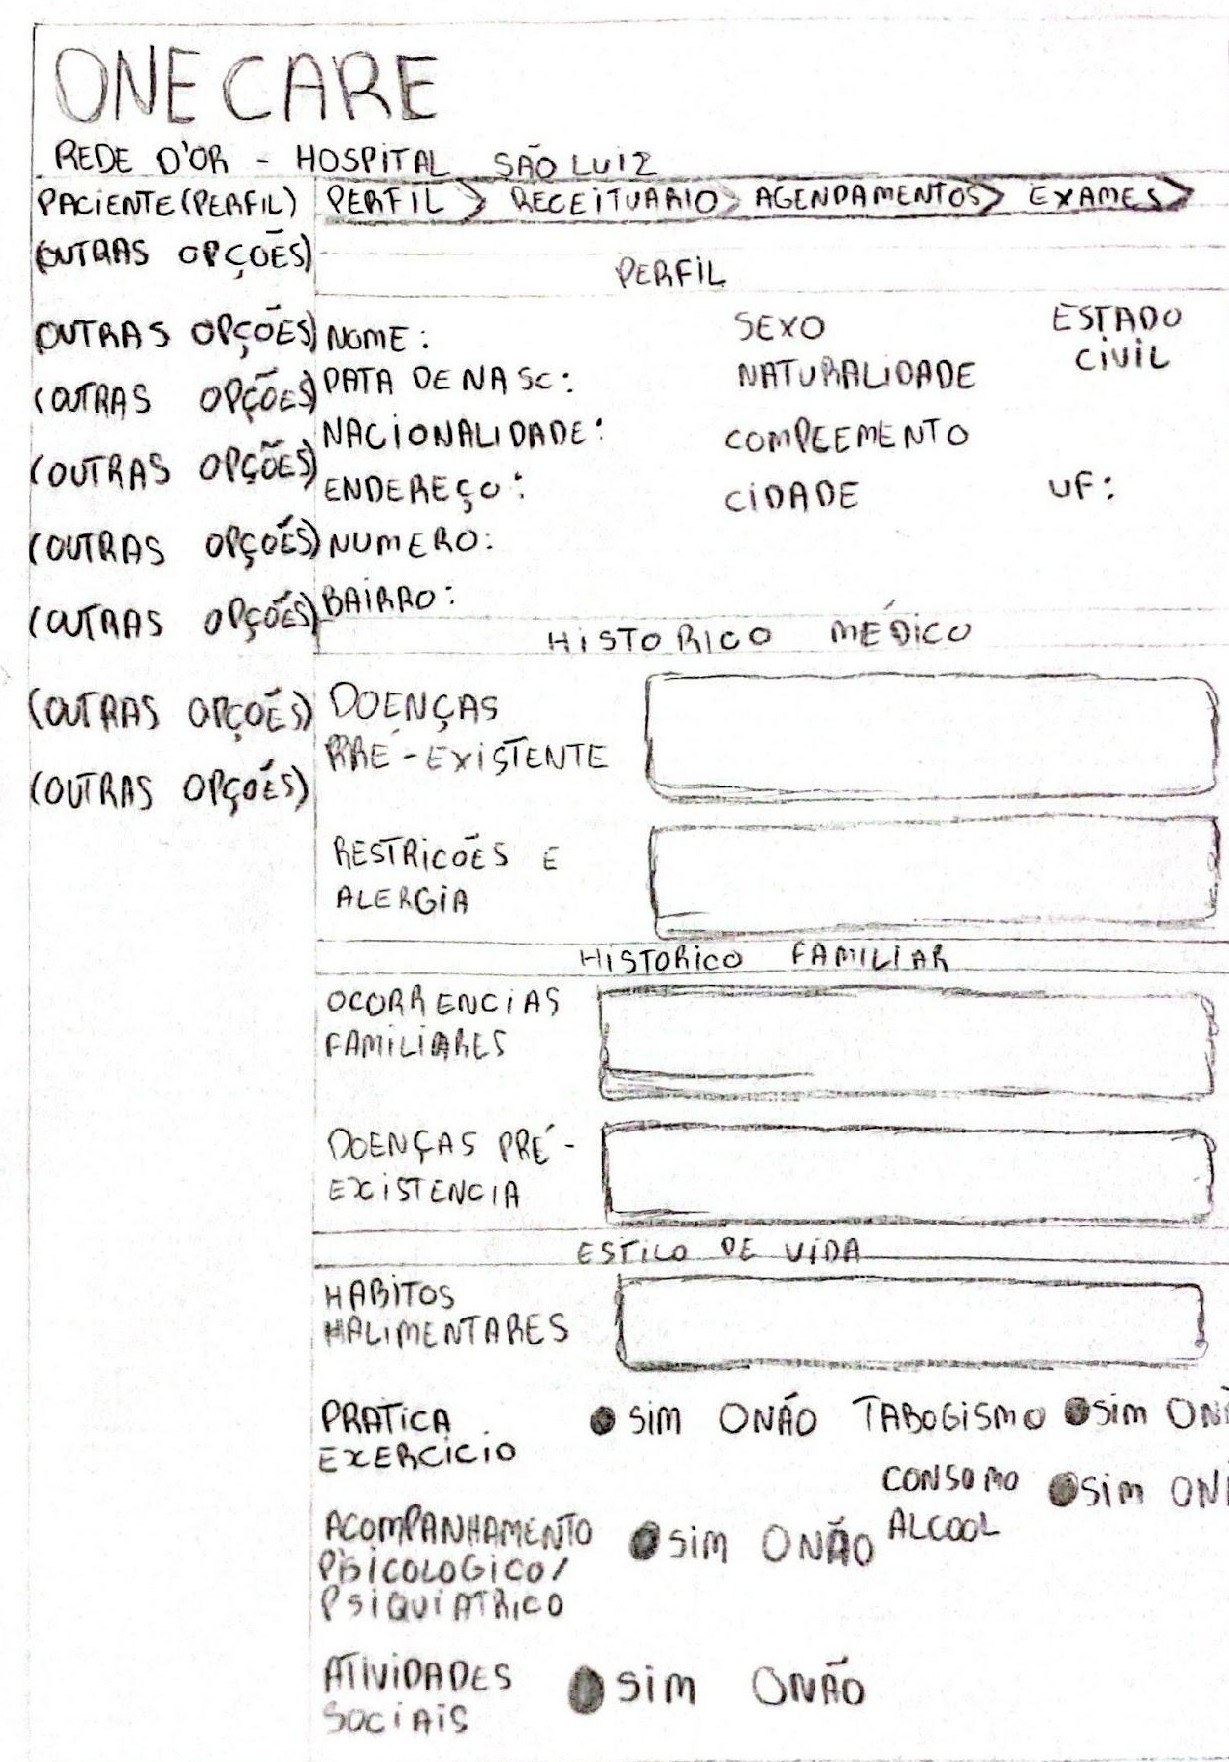 ONE CARE
REDE D'OR - HOSPITAL SÃO LUIZ
PACIENTE (PERFIL)
(OUTRAS OPÇÕES)
OUTRAS OPÇÕES)
(OUTRAS OPÇÕES)
(OUTRAS OPÇÕES)
(OUTRAS OPÇÕES)
(OUTRAS OPÇÕES)
(OUTRAS OPÇÕES)
(OUTRAS OPÇÕES)
PERFIL > RECEITUARIO > AGENDAMENTOS > EXAMES >
PERFIL
NOME: SEXO ESTADO
CIVIL
DATA DE NASC: NATURALIDADE
NACIONALIDADE: COMPLEMENTO
ENDEREÇO: CIDADE UF:
NUMERO:
BAIRRO:
HISTORICO MÉDICO
DOENÇAS
PRÉ-EXISTENTE
RESTRICÕES E
ALERGIA
HISTORICO FAMILIAR
OCORRENCIAS
FAMILIARES
DOENÇAS PRÉ-
EXISTENCIA
ESTILO DE VIDA
HABITOS
HALIMENTARES
PRATICA
EXERCICIO
SIM NÃO TABOGISMO SIM
CONSUMO
ALCOOL
SIM
ACOMPANHAMENTO
PSICOLOGICO/
PSIQUIATRICO
SIM NÃO
ATIVIDADES
SOCIAIS
SIM NÃO